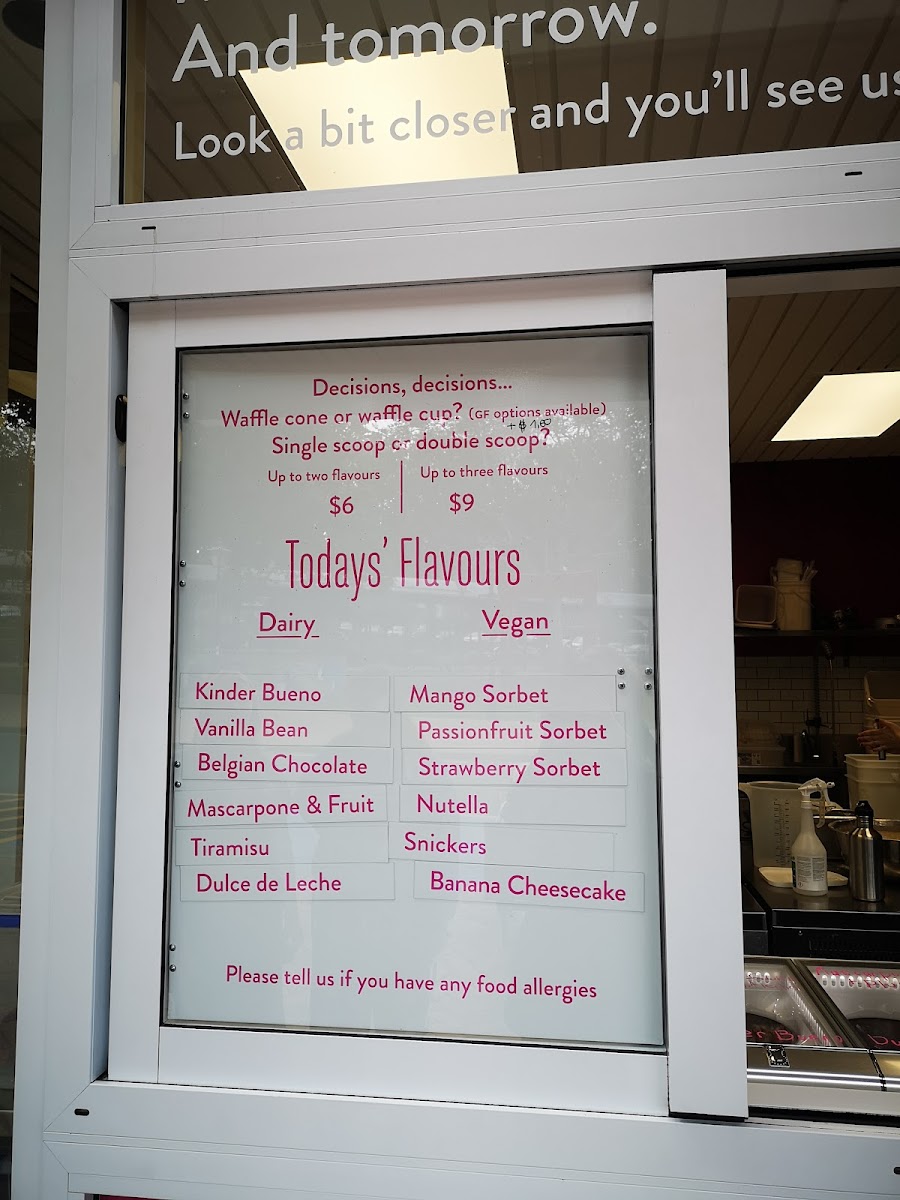 And tomorrow.
Look a bit closer and you'll see us
Decisions, decisions...
Waffle cone or waffle cup? (GF options available)
+ $1.60
Single scoop or double scoop?
Up to two flavours
$6
Up to three flavours
$9
Todays' Flavours
Dairy
Kinder Bueno
Vanilla Bean
Belgian Chocolate
Mascarpone & Fruit
Tiramisu
Dulce de Leche
Vegan
Mango Sorbet
Passionfruit Sorbet
Strawberry Sorbet
Nutella
Snickers
Banana Cheesecake
Please tell us if you have any food allergies